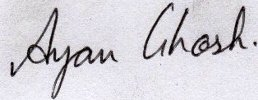 Ayan Ghosh.